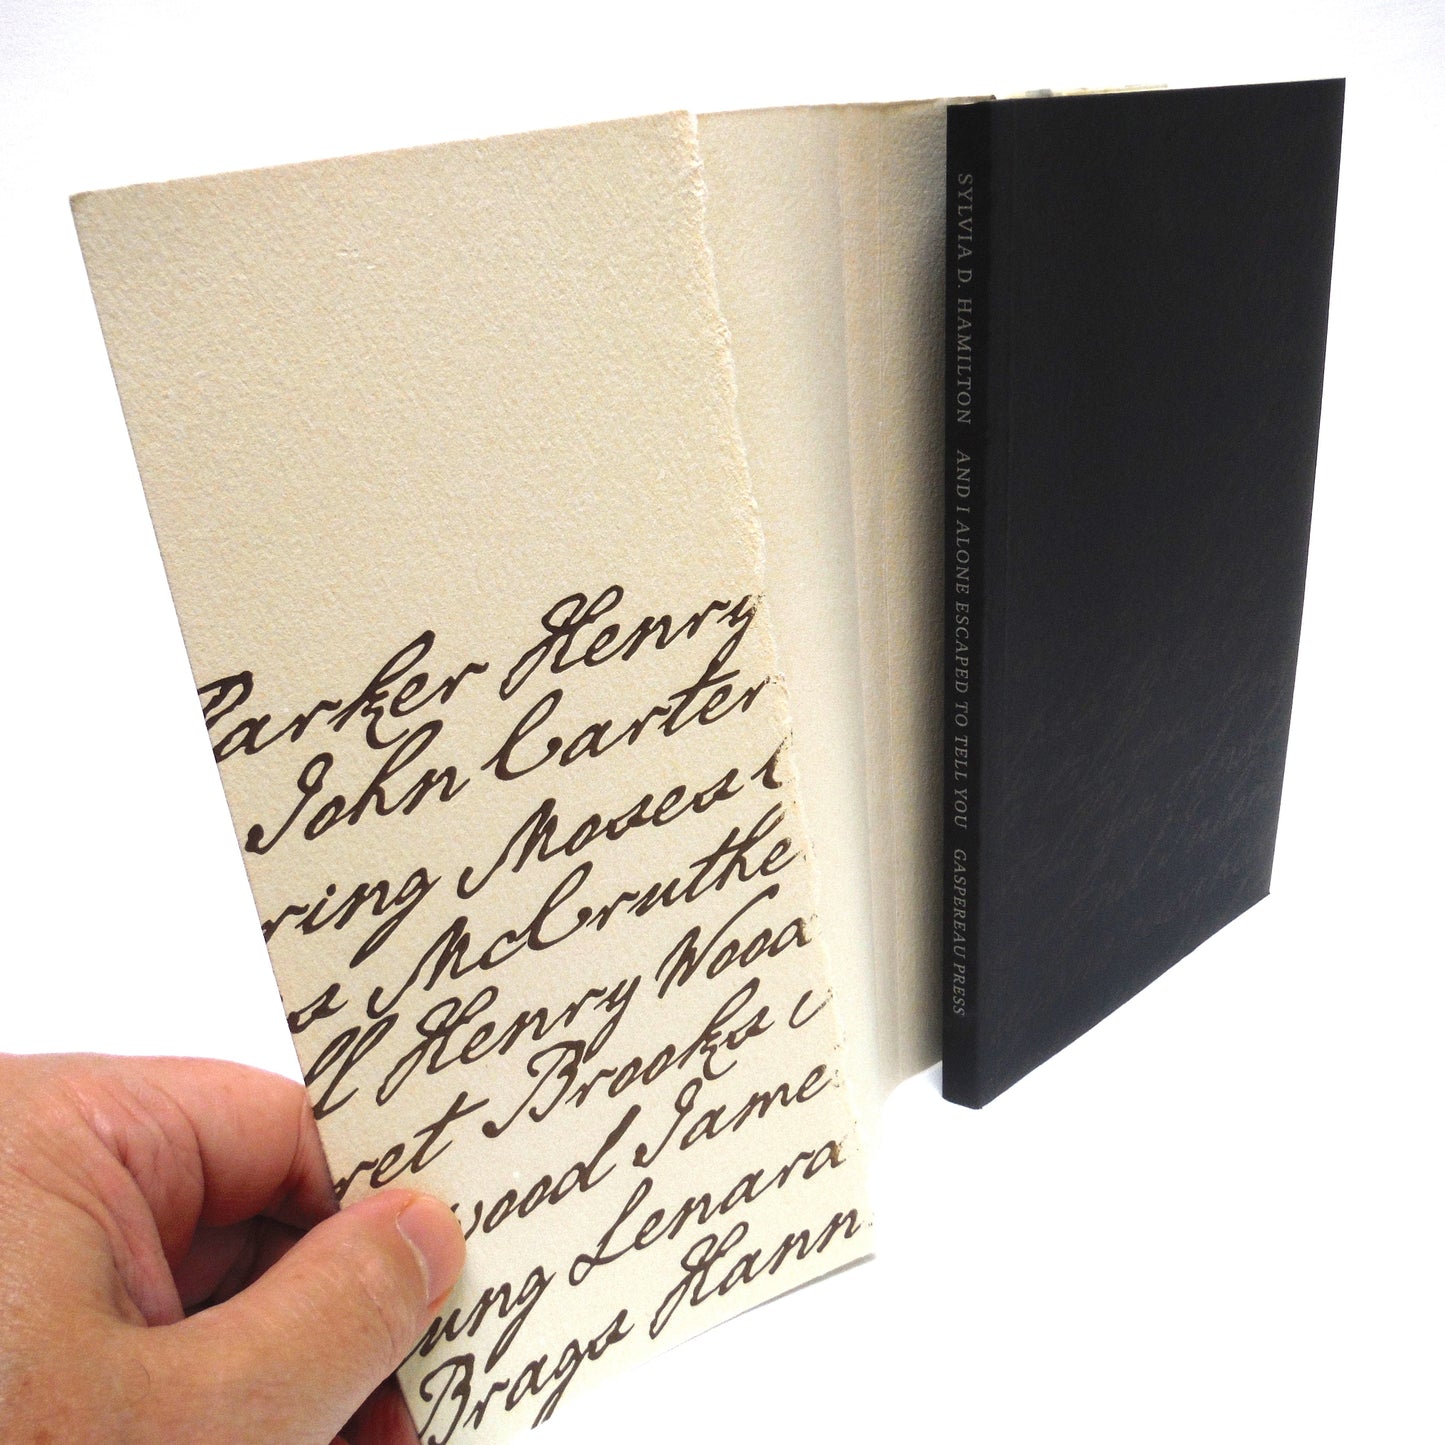 Parker Henry
John Carter
ring Moses
s McGruthe
ll Henry Wood
ret Brooks
wood Jame
ung Lenard
Brags Hann
SYLVIA D. HAMILTON AND I ALONE ESCAPED TO TELL YOU GASPEREAU PRESS